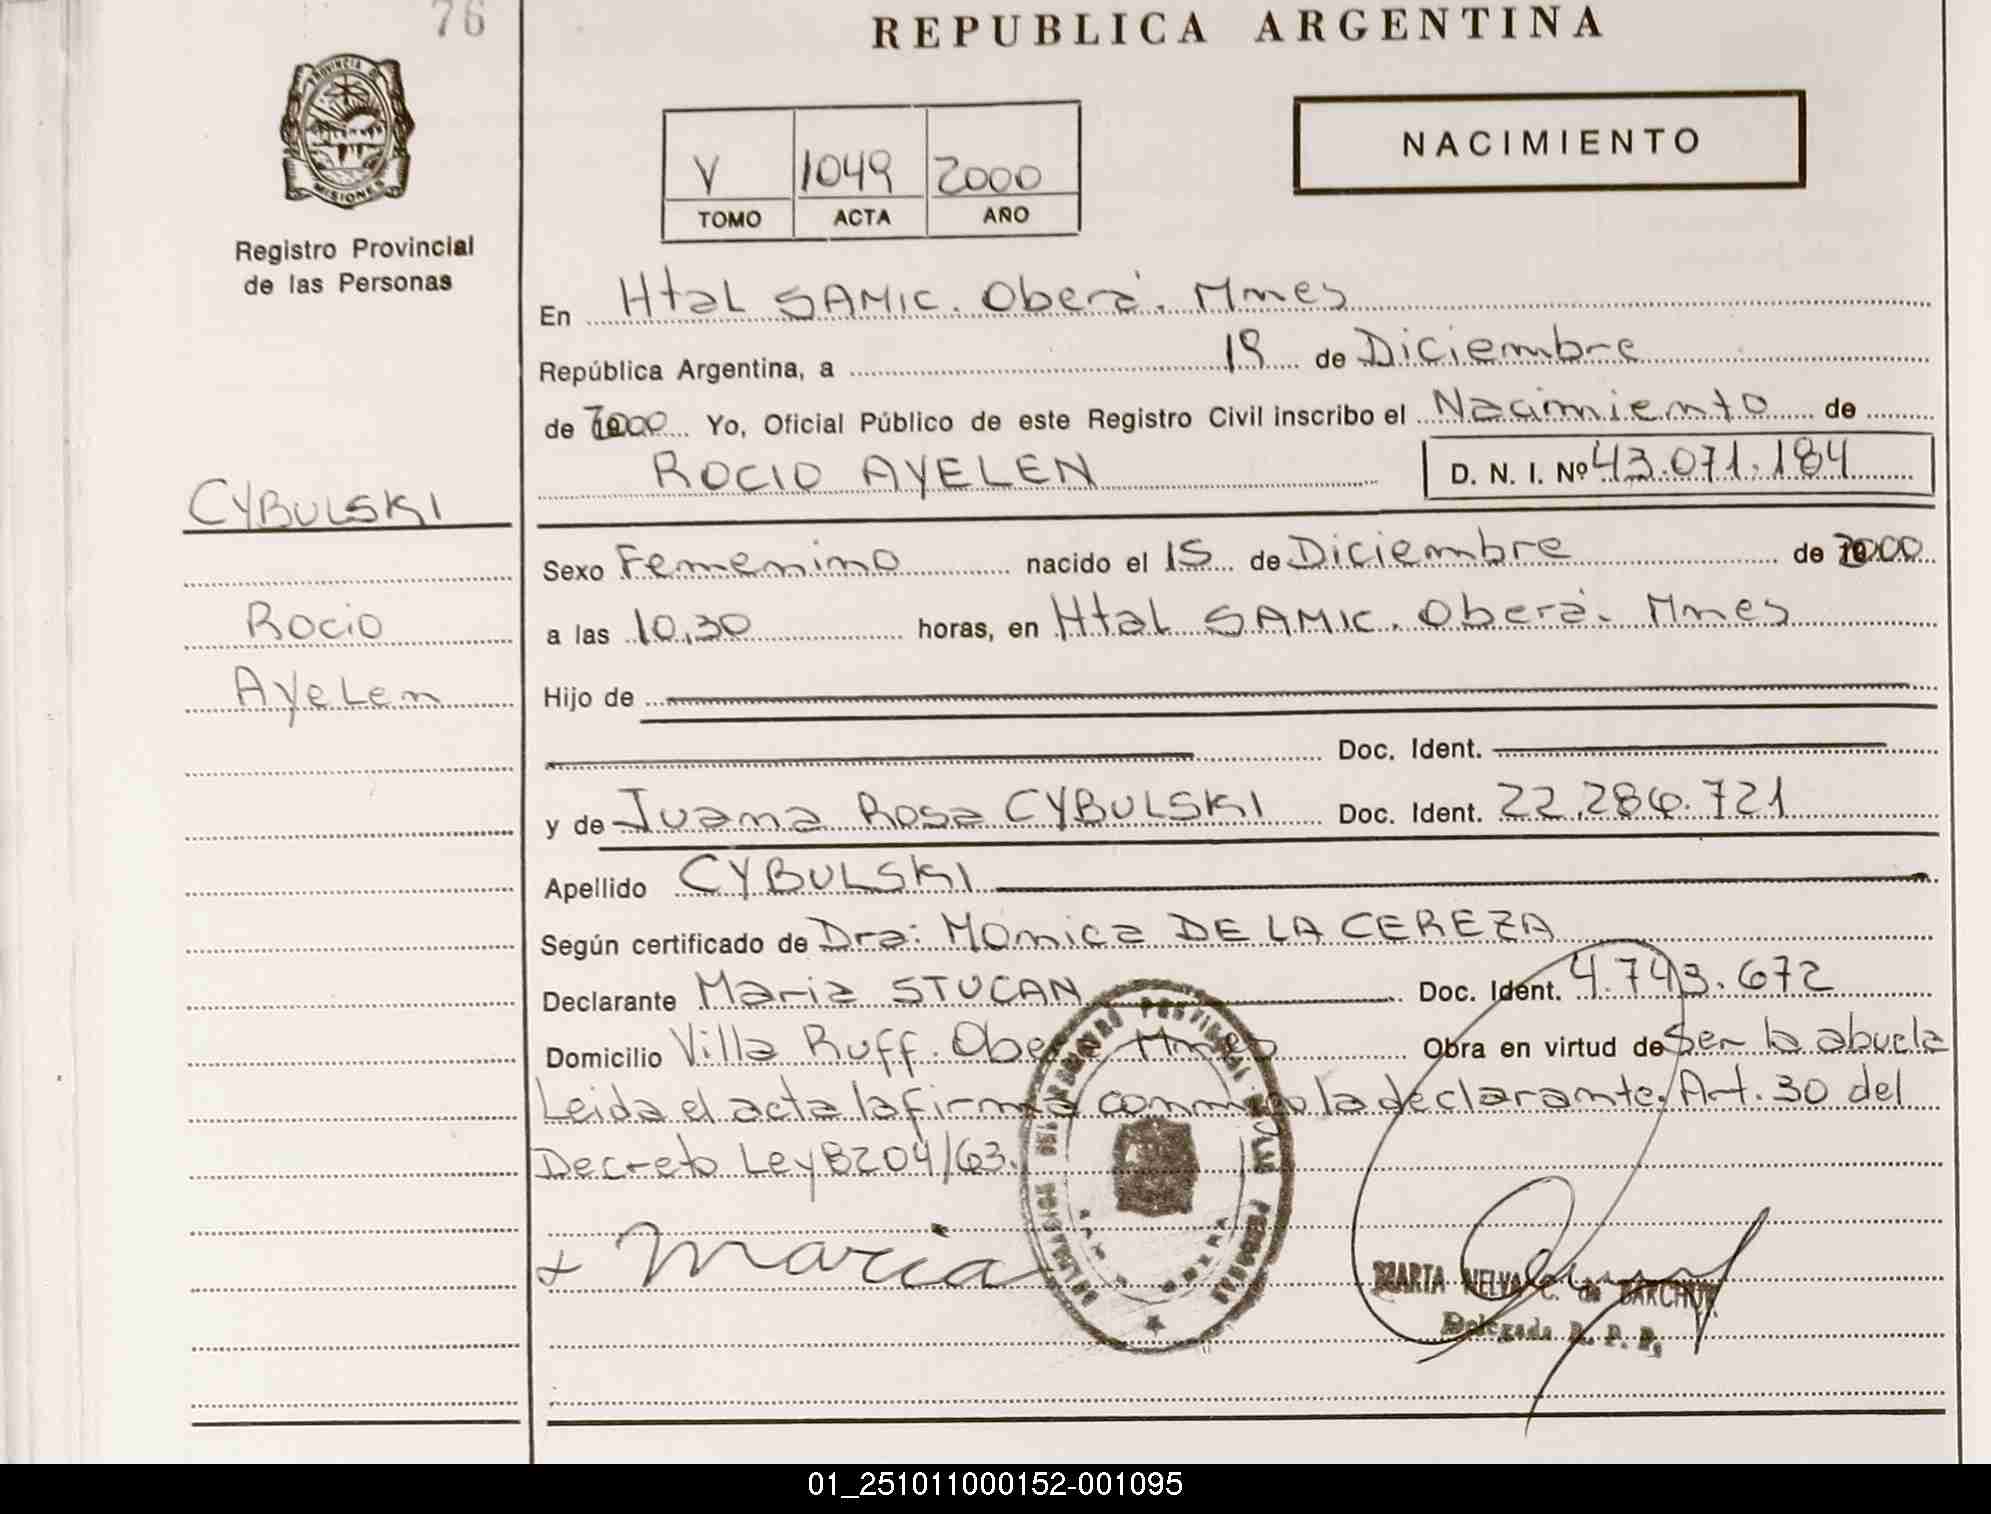 76
REPUBLICA ARGENTINA
PROVINCIA DE
MISIONES
Registro Provincial
de las Personas
V 1049 2000
TOMO ACTA AÑO
NACIMIENTO
En Htal SAMIC. Oberá. Mnes
República Argentina, a 19 de Diciembre
de 2000 Yo, Oficial Público de este Registro Civil inscribo el Nacimiento de
ROCIO AYELEN D. N. I. Nº 43.071.184
CYBULSKI
Rocio
Ayelen
Sexo Femenino nacido el 15 de Diciembre de 2000
a las 10,30 horas, en Htal SAMIC. Oberá. Mnes
Hijo de
Doc. Ident.
y de Juana Rosa CYBULSKI Doc. Ident. 22.286.721
Apellido CYBULSKI
Según certificado de Dra: Monica DE LA CEREZA
Declarante Maria STUCAN Doc. Ident. 4.743.672
Domicilio Villa Ruff. Oberá Mnes Obra en virtud de Ser la abuela
Leida el acta la firma conmigo la declarante. Art. 30 del
Decreto Ley 8204/63.
+ Maria
MARTA NELVA C. de BARCHUK
Delegada R. P. P.
01_251011000152-001095